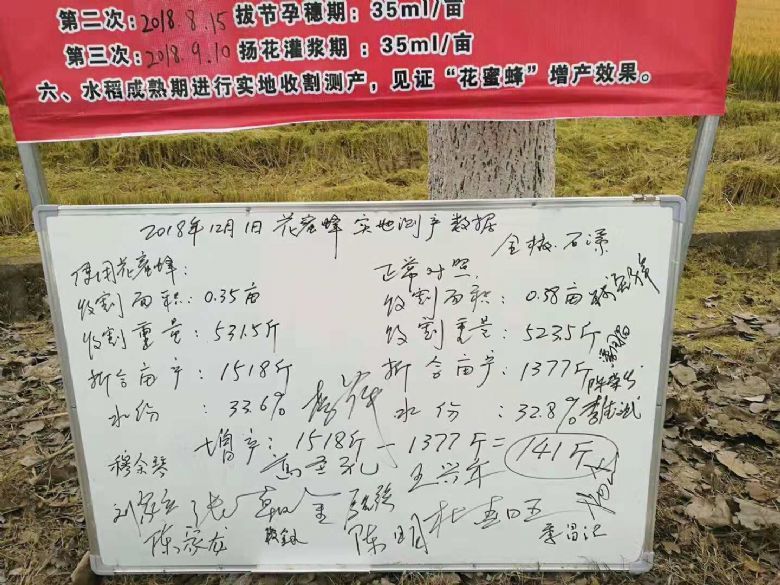 第二次:2018.8.15拔节孕穗期:35ml/亩
第三次:2018.9.10扬花灌浆期:35ml/亩
六、水稻成熟期进行实地收割测产,见证“花蜜蜂”增产效果。
2018年12月1日 花蜜蜂 实地测产数据
使用花蜜蜂:
收割面积:0.35亩
收割重量:531.5斤
折合亩产:1518斤
水份:33.6%
正常对照
收割面积:0.38亩
收割重量:523.5斤
折合亩产:1377斤
水份:32.8%
增产:1518斤-1377斤=141斤
穆余琴
王兴年
陈家龙
陈明
季昌汇